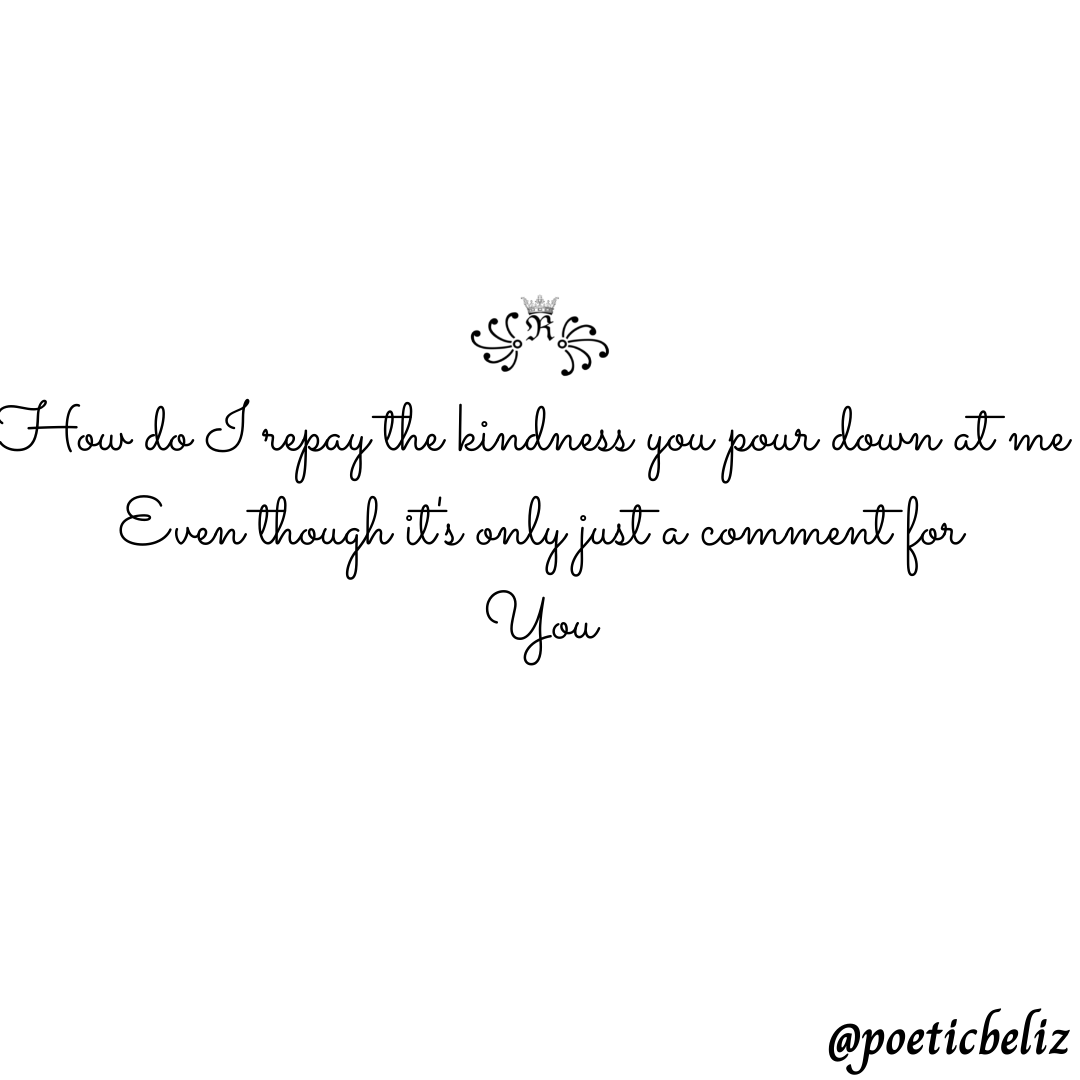 R
How do I repay the kindness you pour down at me
Even though it's only just a comment for
You
@poeticbeliz